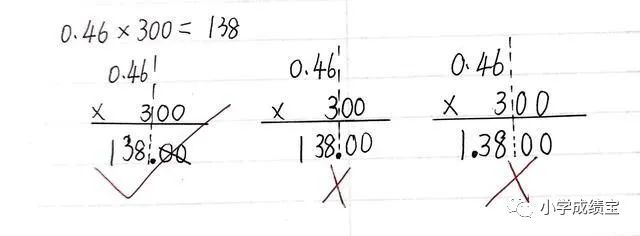 0.46 × 300 = 138
0.46 0.46 0.46
× 300 × 300 × 300
138.00 138.00 1.3800
小学成绩宝